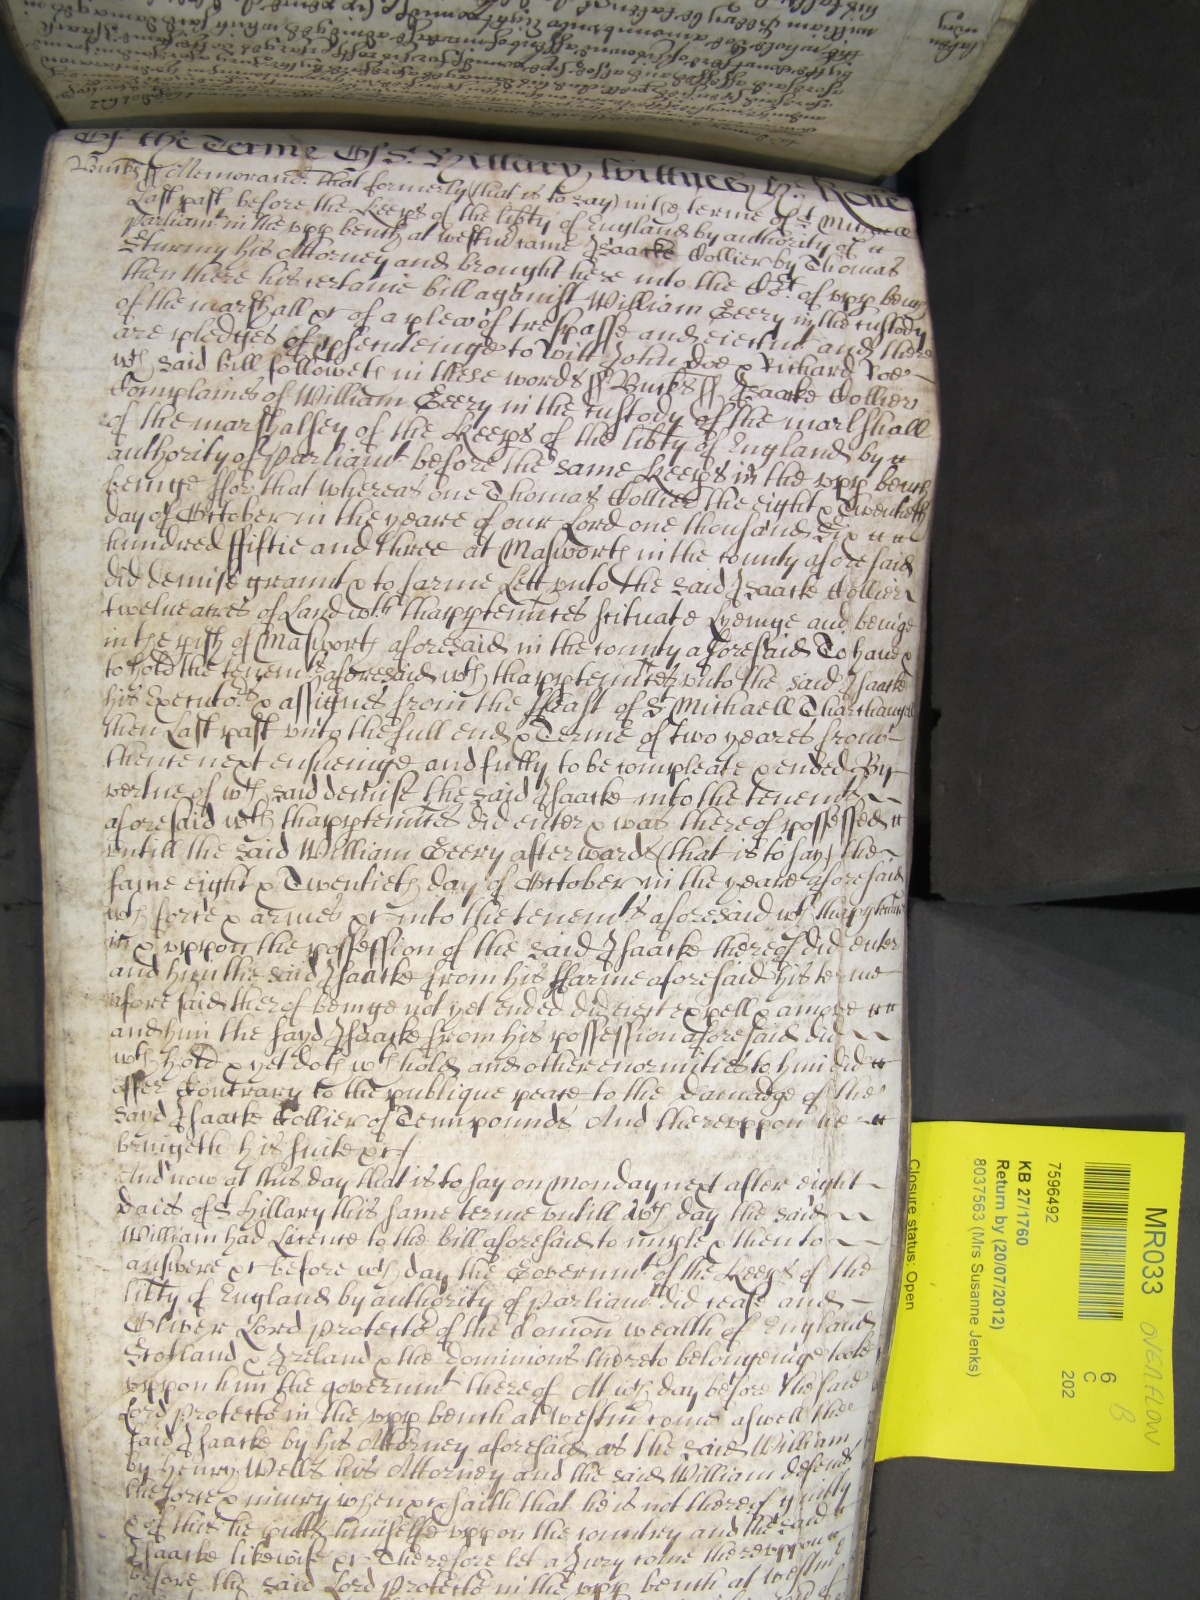 Of the Terme Of St. Hillary, Wittnes, H: Rolle
Bucks ss Memorand. that formerly (that is to say) in the terme of St Michaell
Last past before the Keeps of the libty of England by authority of
Parliamt in the upp bench at westm came Isaacke Collier by Thomas
Sturmy his Attorney and brought here into the Crt. of upp bench
then there his certaine bill against William Geery in the custody
of the marshall &c of a plea of trespasse and eiectmt and there
are pledges of psecuteinge to witt John Doe & Richard Roe
wch said bill followeth in these words ss Bucks ss Isaacke Collier
Complaines of William Geery in the custody of the marshall
of the marshalsey of the Keeps of the libty of England by
authority of Parliamt before the same Keeps in the upp bench
beinge ffor that whereas one Thomas Collier the eight & Twentieth
day of October in the yeare of our Lord one thousand Six
hundred ffiftie and three at Masworth in the county aforesaid
did demise graunt & to farme Lett unto the said Isaacke Collier
twelue acres of Land wth thapptenncs scituate Lyeinge and beinge
in the pish of Masworth aforesaid in the county aforesaid To haue &
to hold the tenemts aforesaid wth thapptenncs unto the said Isaacke
his Executors & assignes from the ffeast of St Michaell Tharchangell
then Last past unto the full end & Terme of two yeares from
thence next ensueinge and fully to be compleate & ended By
vertue of wch said demise the said Isaacke into the tenemts
aforesaid wth thapptenncs did enter & was thereof possessed
untill the said William Geery afterwards (that is to say) the
same eight & Twentieth day of October in the yeare aforesaid
wth force & armes &c into the tenemts aforesaid wth thapptenncs
in & uppon the possession of the said Isaacke thereof did enter
and him the said Isaacke from his ffarme aforesaid his terme
aforesaid therof beinge not yet ended did eiect expell & amove
and him the sayd Isaacke from his possession aforesaid did
wth hold & yet doth wth hold and other enormities to him did
offer Contrary to the publique peace to the Damadge of the
sayd Isaacke Collier of Tenn pounds And thereuppon he
bringeth his suite &c
And now at this day that is to say on Monday next after eight
daies of St Hillary this same terme untill wch day the said
William had Licence to the bill aforesaid to imple & then to
answere &c before wch day the Governmt of the Keeps of the
libty of England by authority of Parliamt did cease and
Oliver Lord Protector of the Comon wealth of England
Scotland & Ireland & the dominions thereto belongeinge tooke
uppon him the governmt thereof At wch day before the said
Lord Protector in the upp bench at westm come aswell the
said Isaacke by his Attorney aforesaid as the said William
by Henry Wells his Attorney and the said William defends
the force & iniury when &c & saith that he is not thereof guilty
& of this he putts himselfe uppon the country and the said
Isaacke likewise &c Therefore let a Jury come thereuppon
before the said Lord Protector in the upp bench at westm
MR033
OVERFLOW
B
6
C
202
7596492
KB 27/1760
Return by (20/07/2012)
8037563 (Mrs Susanne Jenks)
Closure status: Open